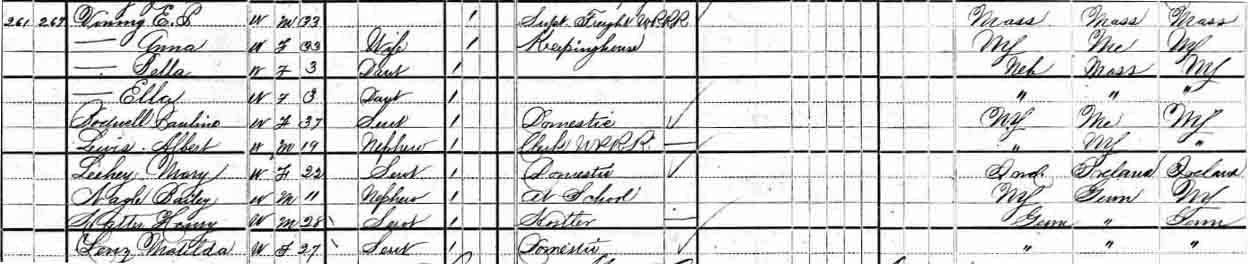 261 267 Vining E. P W M 33 / Supt. Freight U.P.R.R. Mass Mass Mass
— Anna W F 33 Wife / Keepinghouse NY Me NY
— Della W F 3 Daut / Neb Mass NY
— Ella W F 3 Daut / " " "
Rodwell Pauline W F 37 Servt / Domestic NY Me NY
Lewis Albert W M 19 Nephew / Clerk U.P.R.R. " NY "
Leehey Mary W F 22 Servt / Domestic Ind Ireland Ireland
Nagle Bailey W M 11 Nephew / At School NY Germ NY
Henry W M 28 Servt / Hostler Germ " Germ
Lenz Matilda W F 27 Servt / Domestic " " "